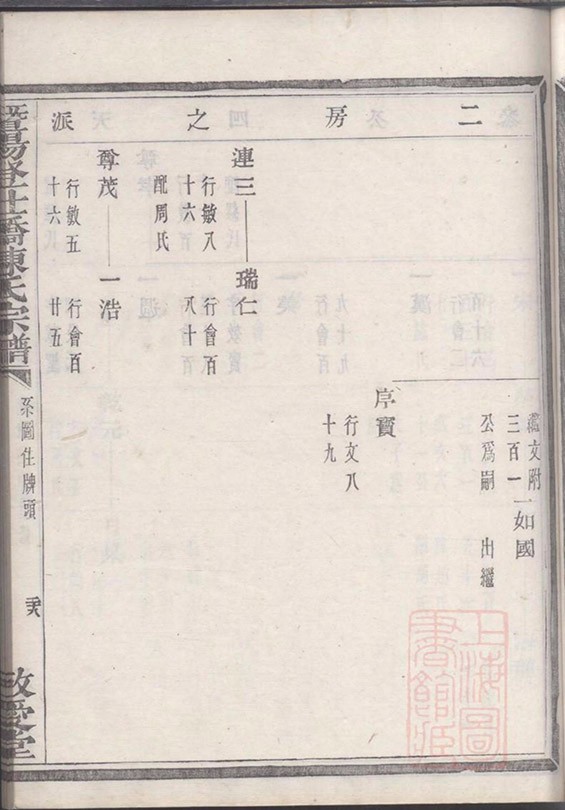 二房之派
繼文附
三百一
公爲嗣
如國
出繼
序寶
行文八
十九
連三
行敏八
十六
配周氏
瑞仁
行會百
八十
尊茂
行敏五
十六
一浩
行會百
廿五
暨陽
橋陳氏宗譜
系圖住牌頭
敬愛堂
上海圖
書館藏